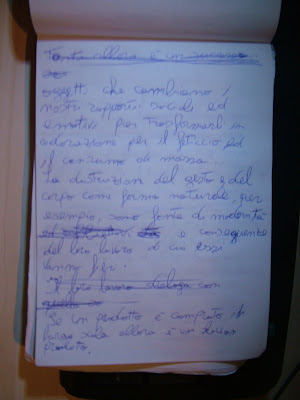 Tanto allora è un successo
oggetti che cambiano i
nostri rapporti sociali ed
emotivi per trasformarli in
adorazione per il feticcio ed
il consumo di massa.
La distruzione del gesto e del
corpo come forma naturale, per
esempio, sono fonte di modernità
ed e conseguente
del loro lavoro di cui essi
vanno
Il loro lavoro dialoga con
Se un prodotto è comprato, in
allora è un
prodotto.